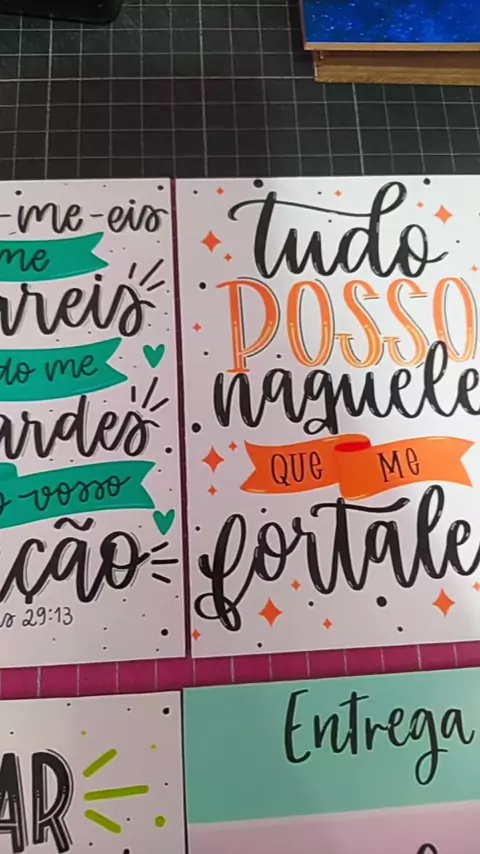 -me-eis
me
rreis
do me
ardes
vosso
ção
29:13
tudo
POSSO
naquele
QUE ME
fortale
AR
Entrega